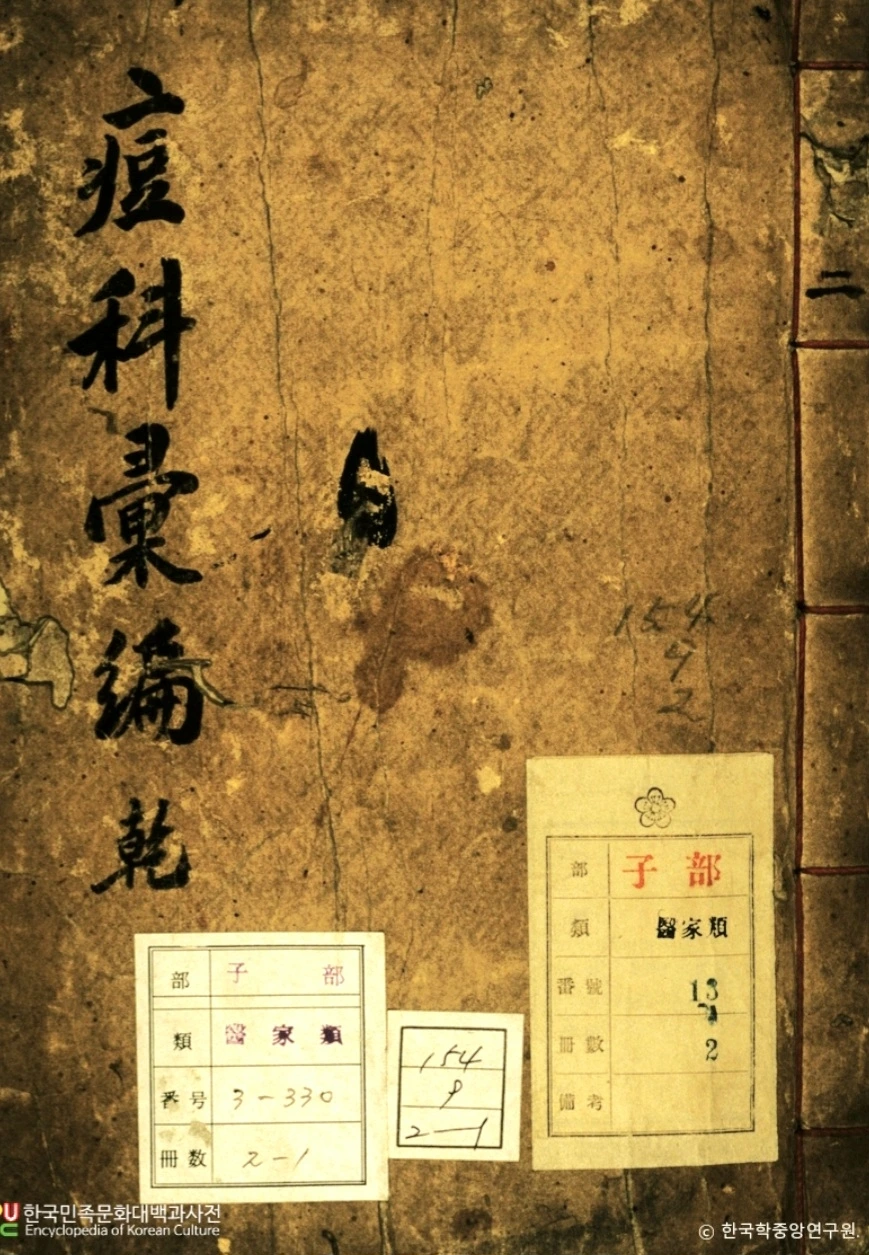 痘科彙編 乾
二
154
9
2
部 子部
類 醫家類
番號 13
冊數 2
備考
部 子部
類 醫家類
番号 3-330
冊数 2-1
154
9
2-1
한국민족문화대백과사전
Encyclopedia of Korean Culture
© 한국학중앙연구원.